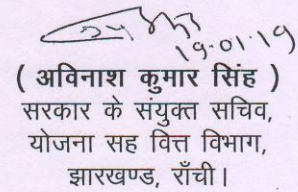 19.01.19
( अविनाश कुमार सिंह )
सरकार के संयुक्त सचिव,
योजना सह वित्त विभाग,
झारखण्ड, राँची।